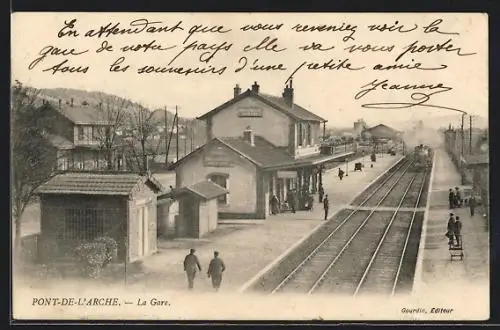 En attendant que vous reveniez voir la
gare de notre pays elle va vous porter
tous les souvenirs d'une petite amie
Jeanne
PONT-DE-L'ARCHE. — La Gare.
Gourdin, Éditeur